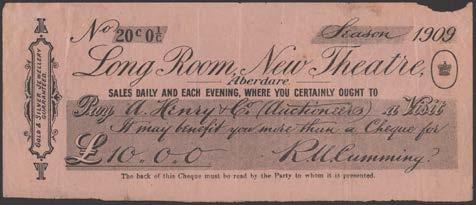 No 20c 0½c Season 1909
Long Room, New Theatre,
Aberdare
SALES DAILY AND EACH EVENING, WHERE YOU CERTAINLY OUGHT TO
Pay A. Henry & Co (Auctioneers) a Visit
It may benefit you more than a Cheque for
£10.0.0 R.U.Cumming?
The back of this Cheque must be read by the Party to whom it is presented.
GOLD & SILVER JEWELLERY
GUARANTEED.